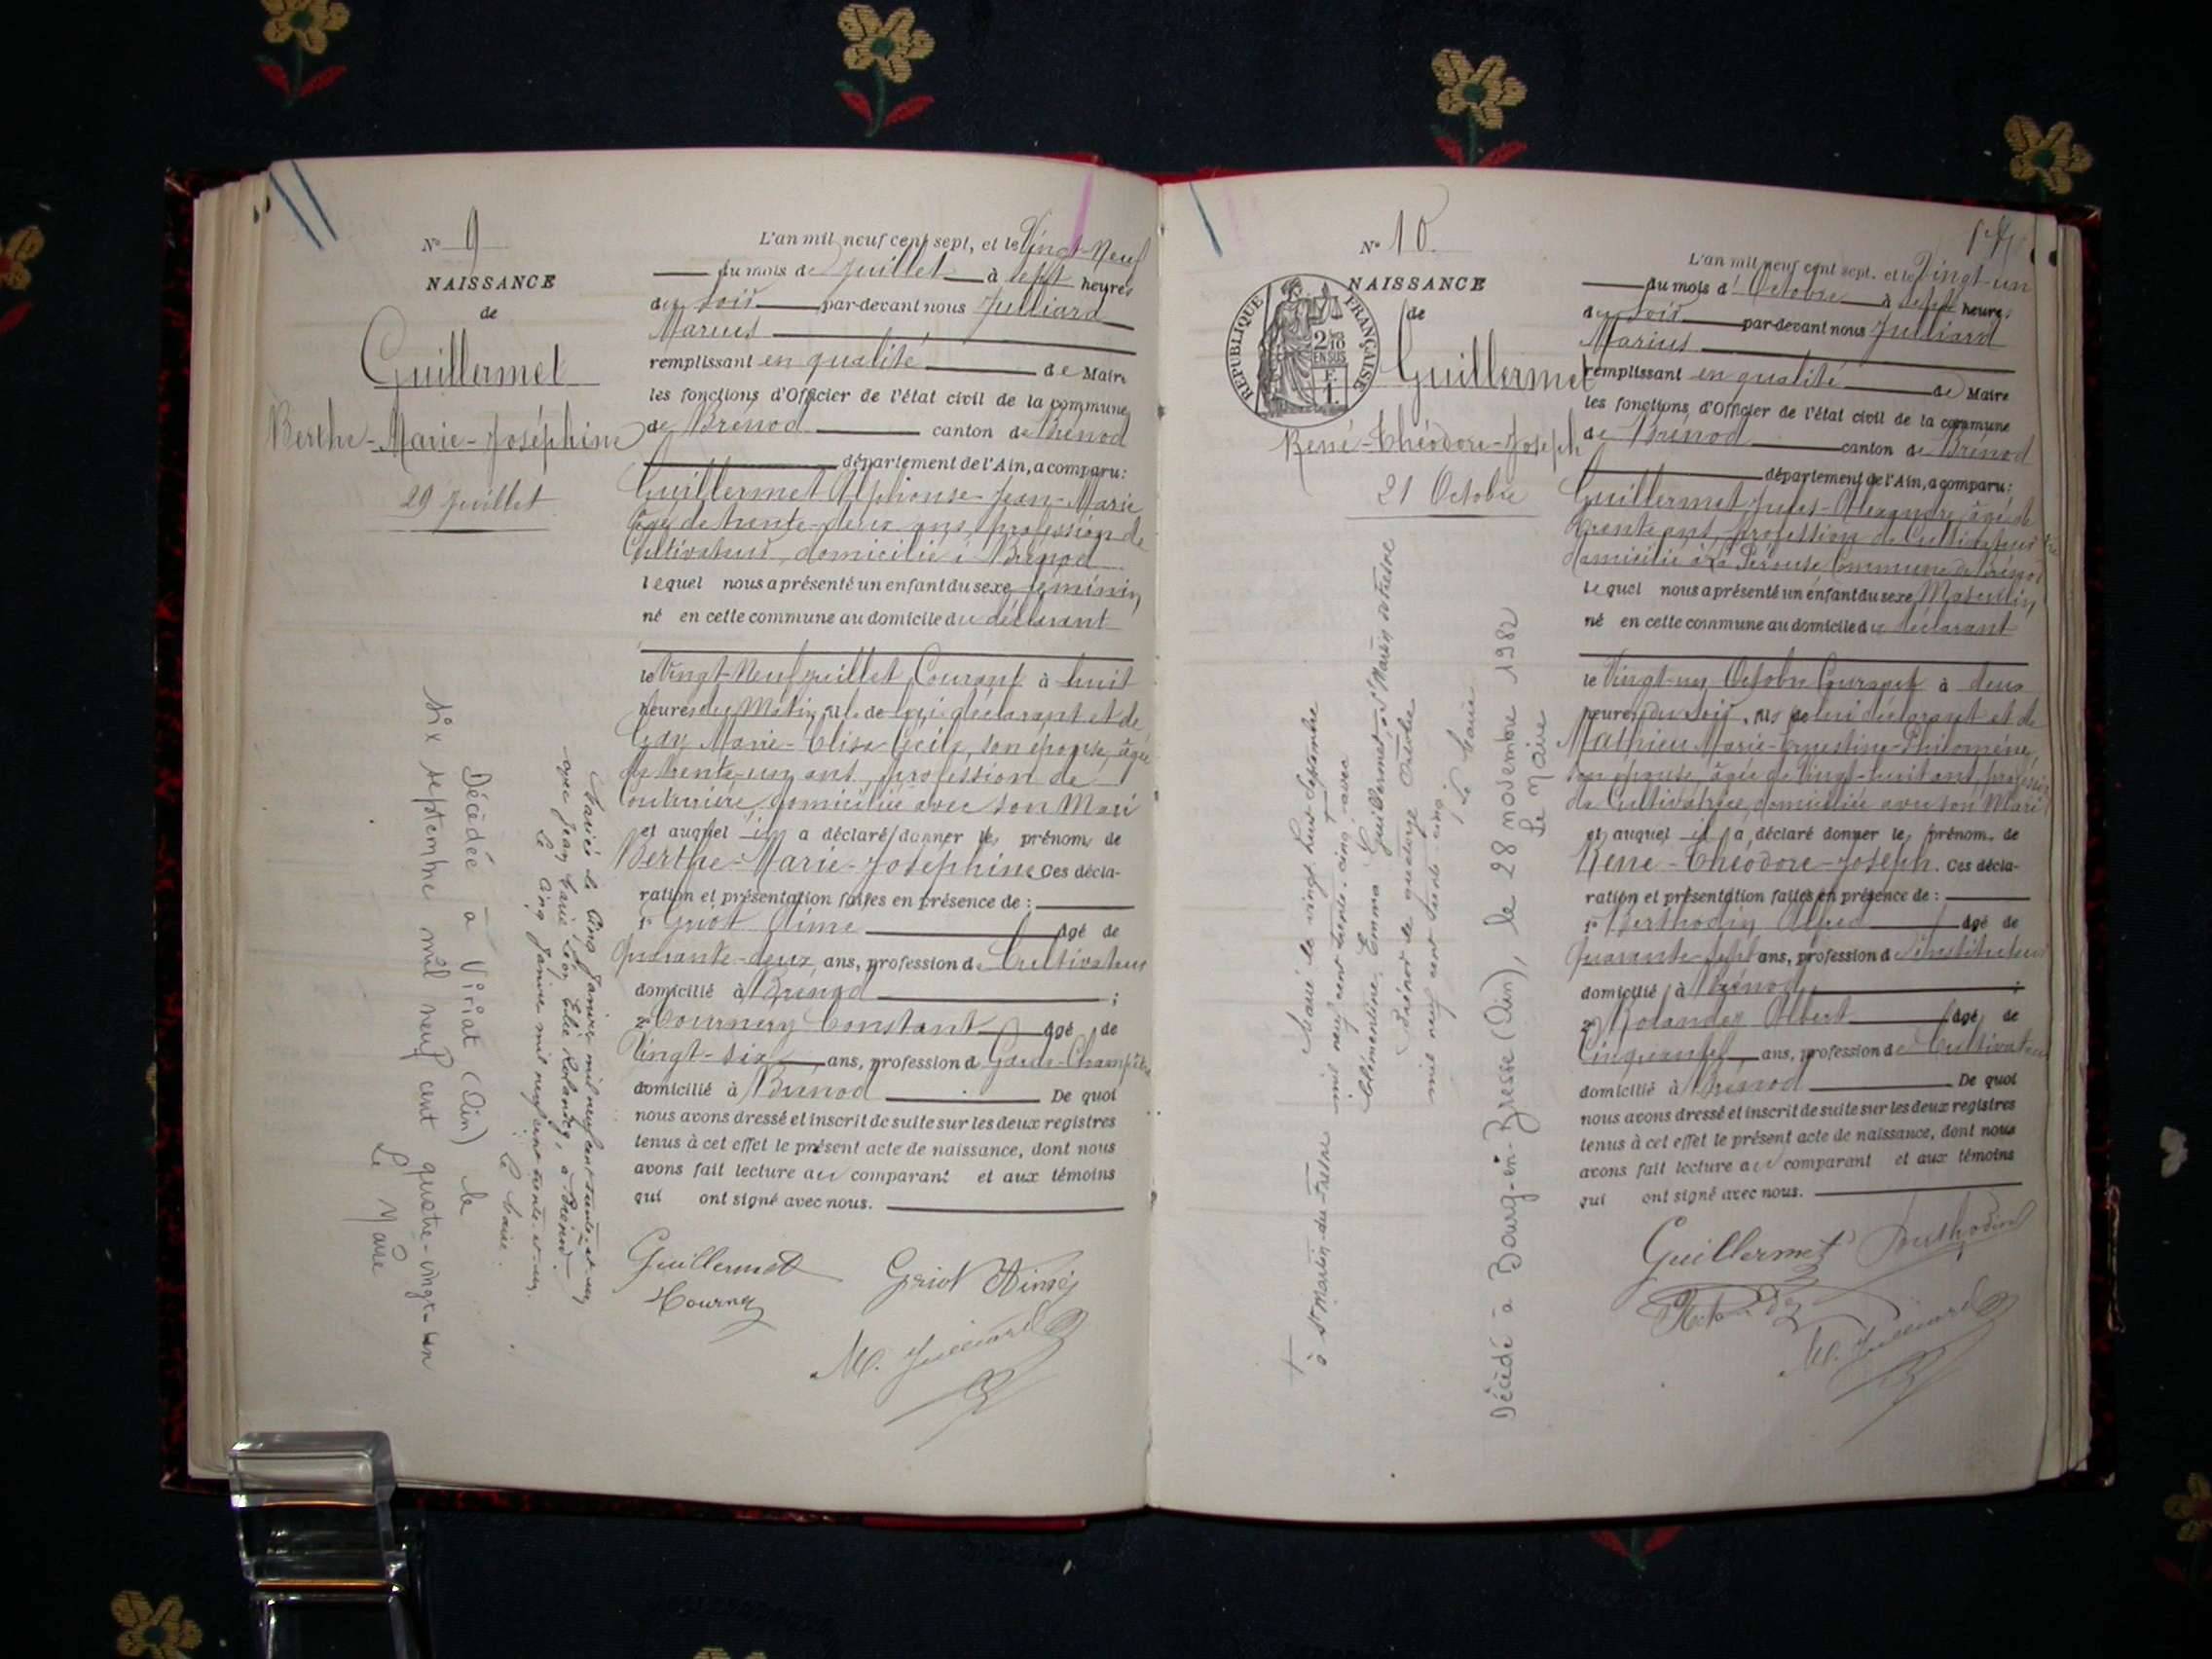 N° 9
NAISSANCE
de
Guillermet
Berthe-Marie-Joséphine
29 Juillet
L'an mil neuf cent sept, et le Vingt-Neuf
du mois de Juillet à sept heures
du soir par-devant nous Julliard
Marius
remplissant en qualité de Maire
les fonctions d'Officier de l'état civil de la commune
de Brénod canton de Brénod
département de l'Ain, a comparu:
Guillermet Alphonse-Jean-Marie
âgé de trente-deux ans, profession de
Cultivateur, domicilié à Brénod
lequel nous a présenté un enfant du sexe féminin
né en cette commune au domicile du déclarant
le Vingt-Neuf Juillet Courant à huit
heures du Matin, fil de lui déclarant et de
Marie-Elisa son épouse, âgée
de trente-un ans, profession de
Couturière, domiciliée avec son Mari
et auquel il a déclaré donner les prénoms de
Berthe-Marie-Joséphine Ces décla-
ration et présentation faites en présence de :
1° Griot Aimé âgé de
Quarante-deux ans, profession de Cultivateur
domicilié à Brénod ;
2° Tournery Constant âgé de
Vingt-six ans, profession de Garde-Champêtre
domicilié à Brénod De quoi
nous avons dressé et inscrit de suite sur les deux registres
tenus à cet effet le présent acte de naissance, dont nous
avons fait lecture au comparant et aux témoins
qui ont signé avec nous.
Guillermet Griot Aimé
M. Julliard
Mariée le cinq Janvier mil neuf cent trente-et-un
avec Jean Marie Léon Elie Rolandez, à Brénod
Le cinq Janvier mil neuf cent trente-et-un.
Le Maire
Décédée à Viriat (Ain) le
six septembre mil neuf cent quatre-vingt-un
Le Maire
N° 10
NAISSANCE
de
RÉPUBLIQUE FRANÇAISE
2/10
EN SUS
F.
1.
Guillermet
René-Théodore-Joseph
21 Octobre
L'an mil neuf cent sept, et le Vingt-un
du mois d'Octobre à sept heures
du soir par-devant nous Julliard
Marius
remplissant en qualité de Maire
les fonctions d'Officier de l'état civil de la commune
de Brénod canton de Brénod
département de l'Ain, a comparu:
Guillermet Jules-Alexandre, âgé de
trente ans, profession de Cultivateur
domicilié à La Pérouse Commune de Brénod
lequel nous a présenté un enfant du sexe Masculin
né en cette commune au domicile du déclarant
le Vingt-un Octobre Courant à deux
heures du soir, fils de lui déclarant et de
Mathieu Marie-Ernestine-Philomène,
son épouse, âgée de Vingt-huit ans, profession
de Cultivatrice, domiciliée avec son Mari
et auquel il a déclaré donner les prénoms de
René-Théodore-Joseph. Ces décla-
ration et présentation faites en présence de :
1° Berthodin âgé de
Quarante-sept ans, profession d'instituteur
domicilié à Brénod ;
2° Rolandez Albert âgé de
Cinquante ans, profession de Cultivateur
domicilié à Brénod De quoi
nous avons dressé et inscrit de suite sur les deux registres
tenus à cet effet le présent acte de naissance, dont nous
avons fait lecture au comparant et aux témoins
qui ont signé avec nous.
Guillermet Berthodin
M. Julliard
Marié le vingt huit Septembre
mil neuf cent trente-cinq + avec
Clémentine Emma Guillermet à St Martin du Fresne
Brénod le quatorze Octobre
mil neuf cent trente cinq
Le Maire
+ à St Martin-du-Fresne
Décédé à Bourg-en-Bresse (Ain), le 28 novembre 1982
Le Maire